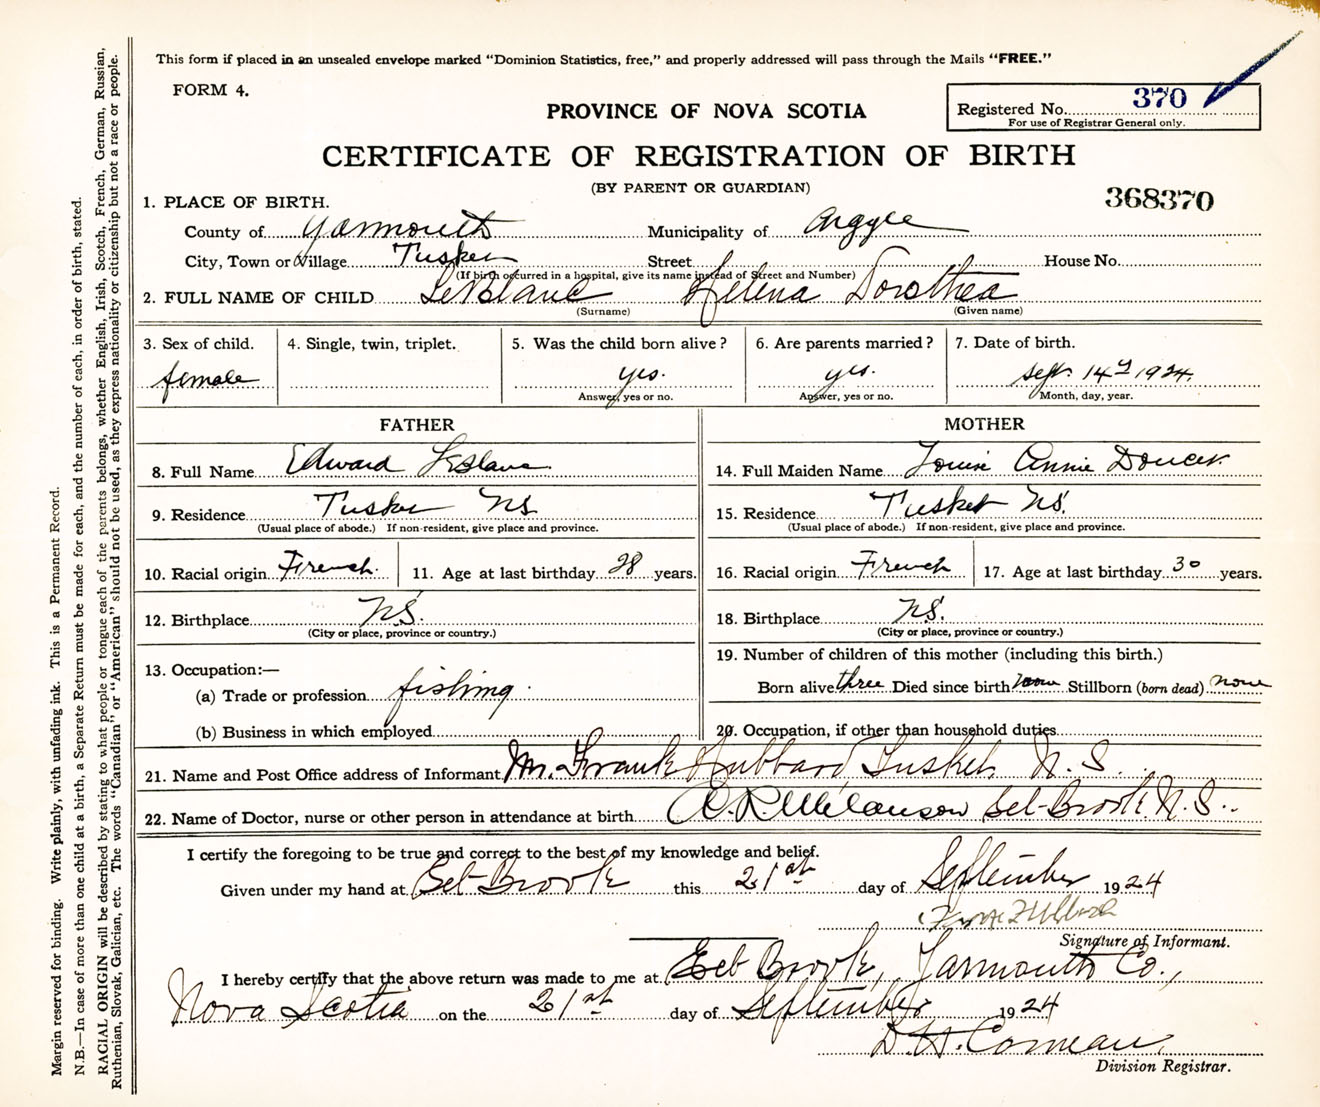 This form if placed in an unsealed envelope marked "Dominion Statistics, free," and properly addressed will pass through the Mails "FREE."
FORM 4.
Registered No. 370
For use of Registrar General only.
PROVINCE OF NOVA SCOTIA
CERTIFICATE OF REGISTRATION OF BIRTH
(BY PARENT OR GUARDIAN)
368370
1. PLACE OF BIRTH.
County of Yarmouth Municipality of Argyle
City, Town or Village Tusket Street House No.
(If birth occurred in a hospital, give its name instead of Street and Number)
2. FULL NAME OF CHILD LeBlanc Helena Dorothea
(Surname) (Given name)
3. Sex of child. 4. Single, twin, triplet. 5. Was the child born alive? 6. Are parents married? 7. Date of birth.
female yes. yes. Sept. 14th 1924.
Answer, yes or no. Answer, yes or no. Month, day, year.
FATHER MOTHER
8. Full Name Edward LeBlanc 14. Full Maiden Name Louise Annie Doucet
9. Residence Tusket NS 15. Residence Tusket NS.
(Usual place of abode.) If non-resident, give place and province. (Usual place of abode.) If non-resident, give place and province.
10. Racial origin French 11. Age at last birthday 28 years. 16. Racial origin French 17. Age at last birthday 30 years.
12. Birthplace N.S. 18. Birthplace N.S.
(City or place, province or country.) (City or place, province or country.)
13. Occupation:— 19. Number of children of this mother (including this birth.)
(a) Trade or profession fishing Born alive three Died since birth none Stillborn (born dead) none
(b) Business in which employed 20. Occupation, if other than household duties
21. Name and Post Office address of Informant Mr. Frank Hubbard, Tusket N.S.
22. Name of Doctor, nurse or other person in attendance at birth A. R. Melanson Eel-Brook N.S.
I certify the foregoing to be true and correct to the best of my knowledge and belief.
Given under my hand at Eel-Brook this 21st day of September 1924
Frank Hubbard
Signature of Informant.
I hereby certify that the above return was made to me at Eel Brook, Yarmouth Co.,
Nova Scotia on the 21st day of September 1924
D. H. Comeau,
Division Registrar.
Margin reserved for binding. Write plainly, with unfading ink. This is a Permanent Record.
N.B.—In case of more than one child at a birth, a Separate Return must be made for each, and the number of each, in order of birth, stated.
RACIAL ORIGIN will be described by stating to what people or tongue each of the parents belongs, whether English, Irish, Scotch, French, German, Russian,
Ruthenian, Slovak, Galician, etc. The words "Canadian" or "American" should not be used, as they express nationality or citizenship but not a race or people.